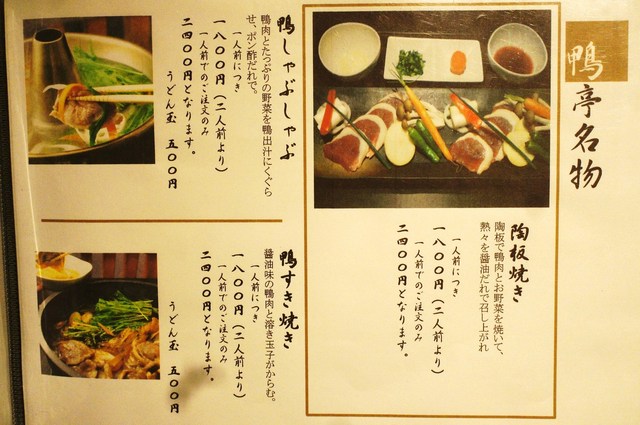 鴨亭名物
陶板焼き
陶板で鴨肉とお野菜を焼いて、
熱々を醤油だれで召し上がれ
一人前につき
一八〇〇円（二人前より）
一人前でのご注文のみ
二四〇〇円となります。
鴨しゃぶしゃぶ
鴨肉とたっぷりの野菜を鴨出汁にくぐら
せ、ポン酢だれで。
一人前につき
一八〇〇円（二人前より）
一人前でのご注文のみ
二四〇〇円となります。
うどん玉 五〇〇円
鴨すき焼き
醤油味の鴨肉と溶き玉子がからむ。
一人前につき
一八〇〇円（二人前より）
一人前でのご注文のみ
二四〇〇円となります。
うどん玉 五〇〇円